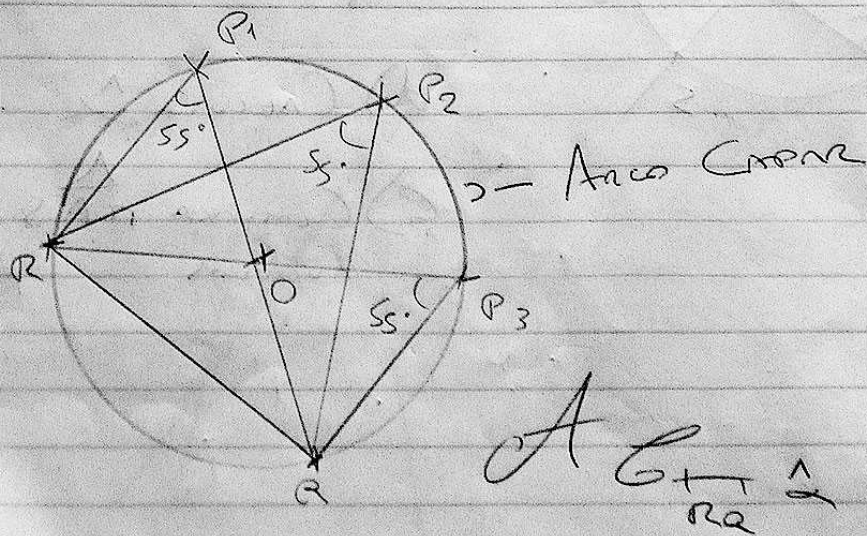 P1
P2
55°
55°
Arco Capaz
R
O
55°
P3
Q
A C RQ α̂